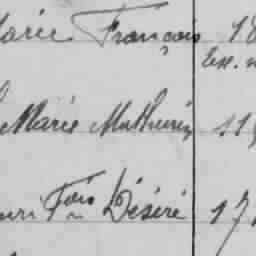 Marie François 18
Marie Mathurin 11
Fois Désiré 17